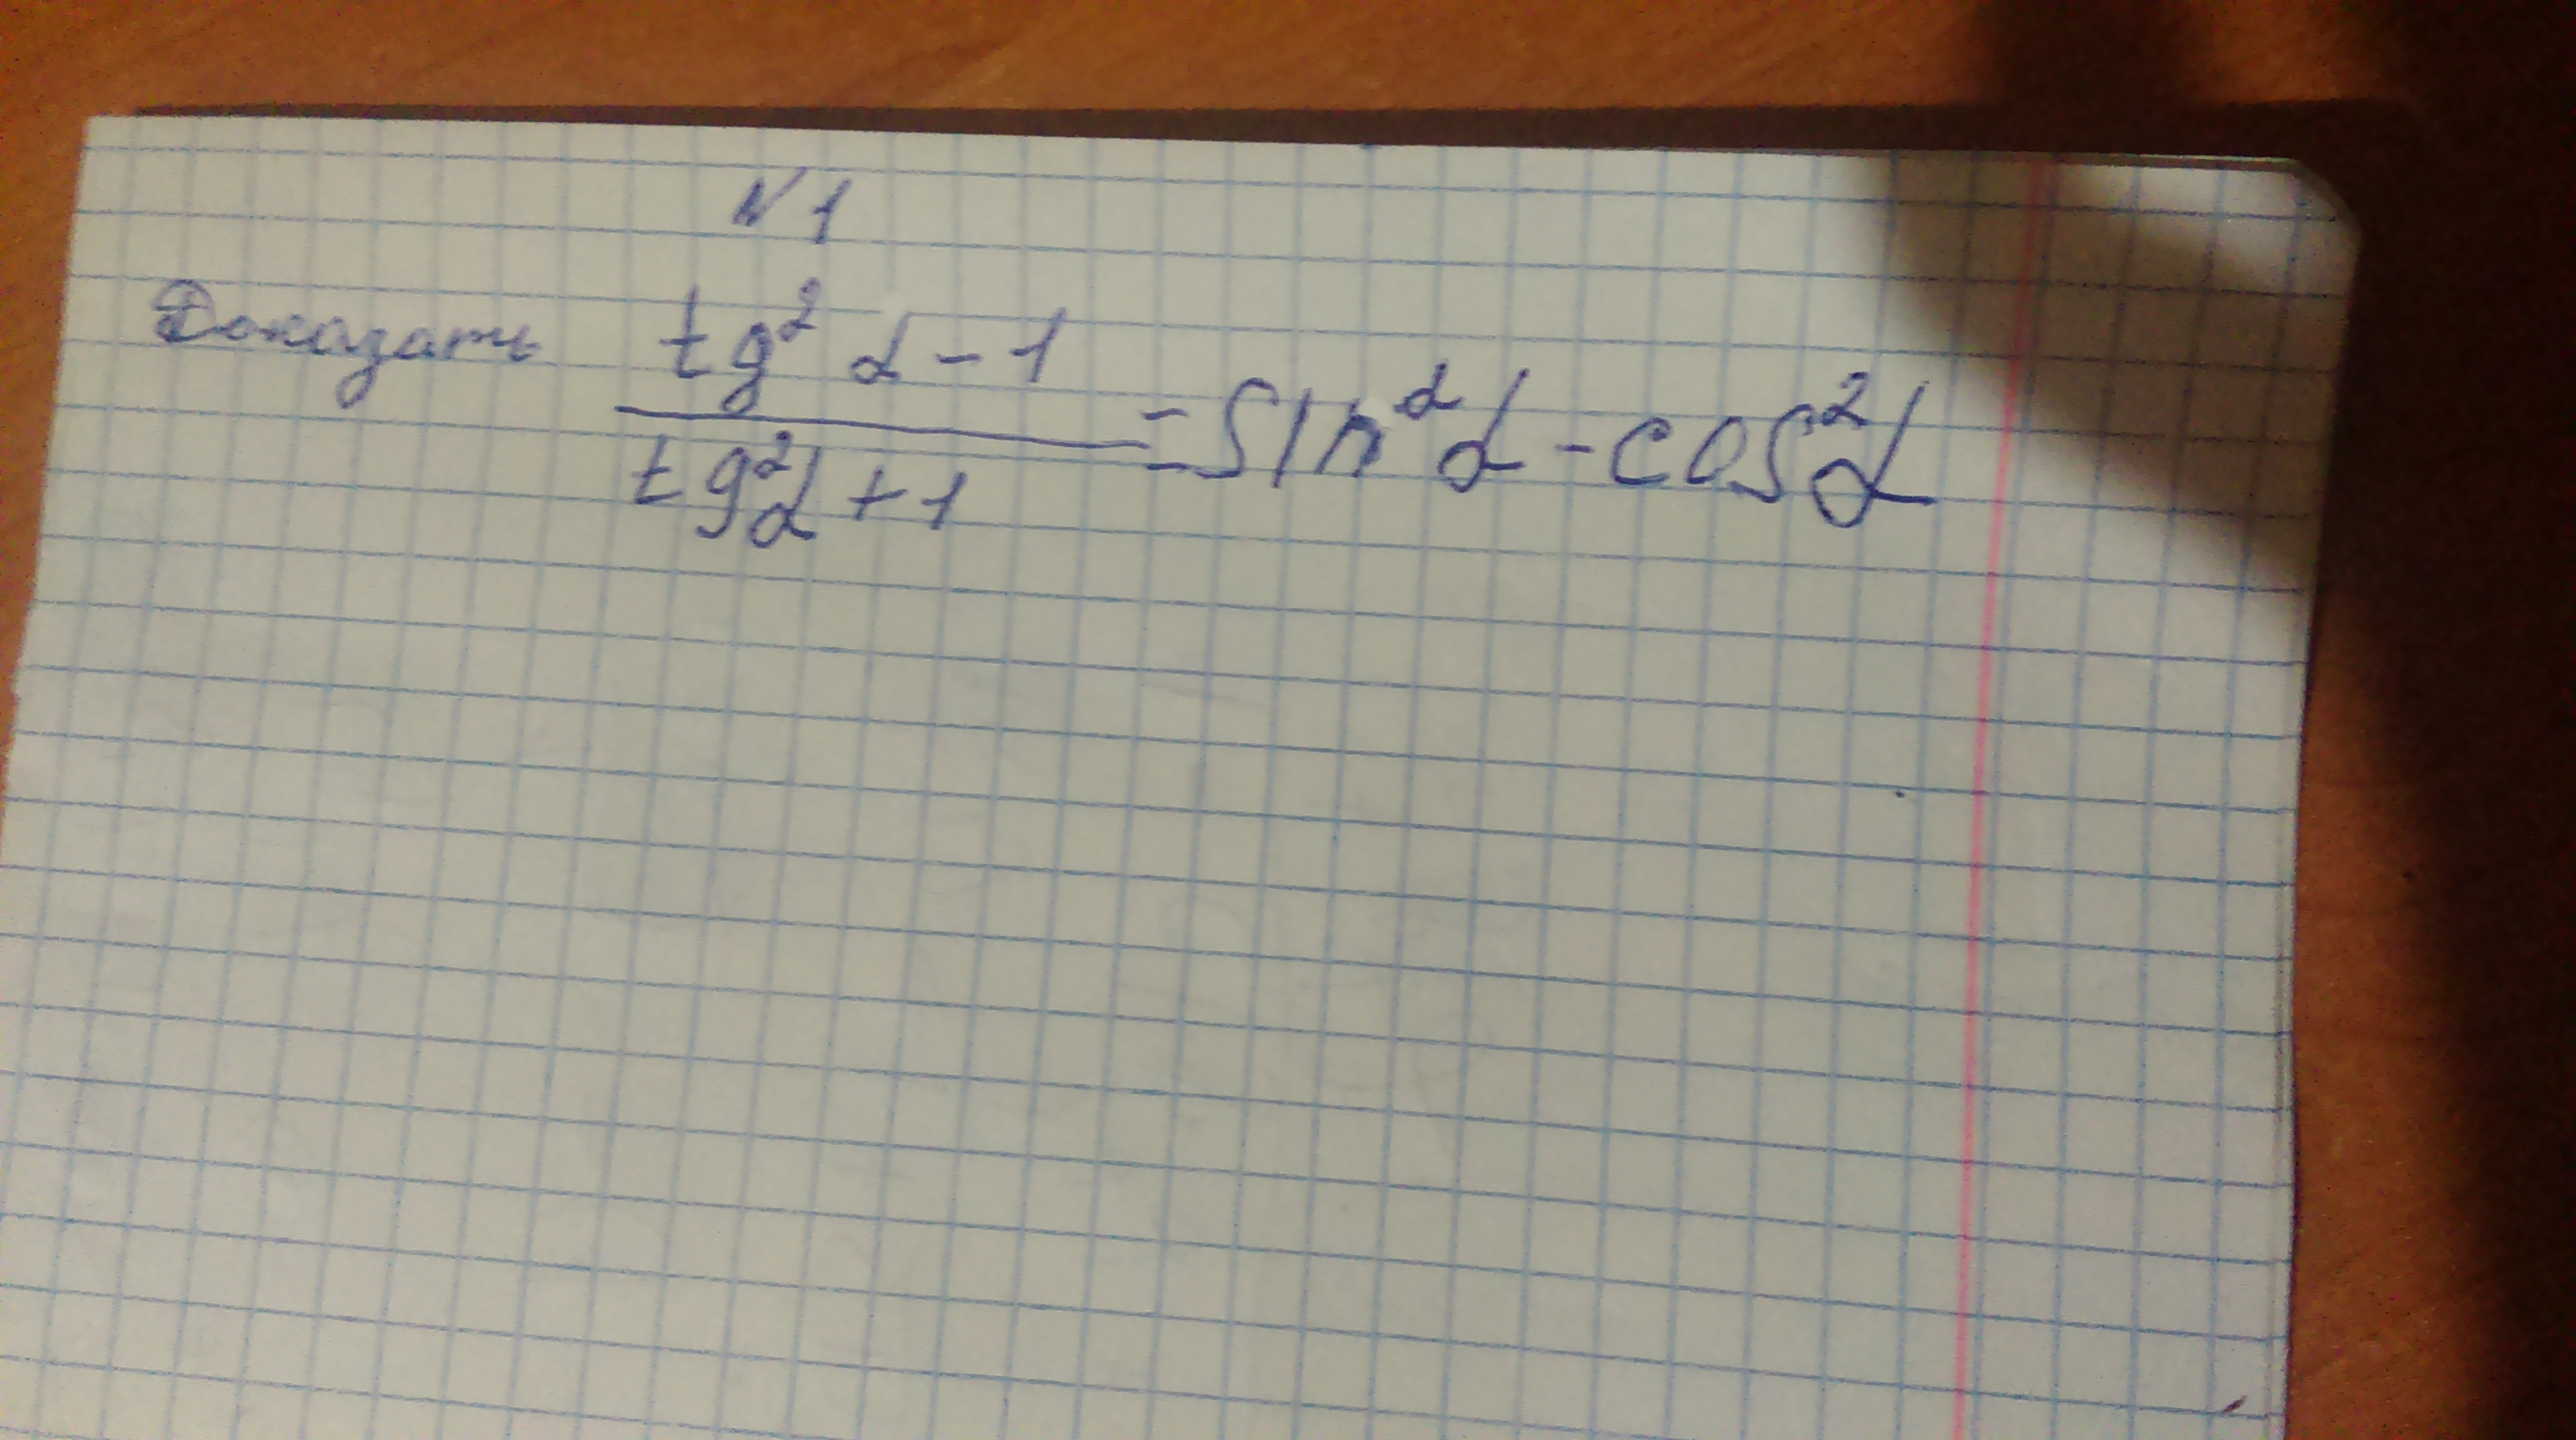 N 1
Доказать tg² α - 1
tg² α + 1 = sin² α - cos² α